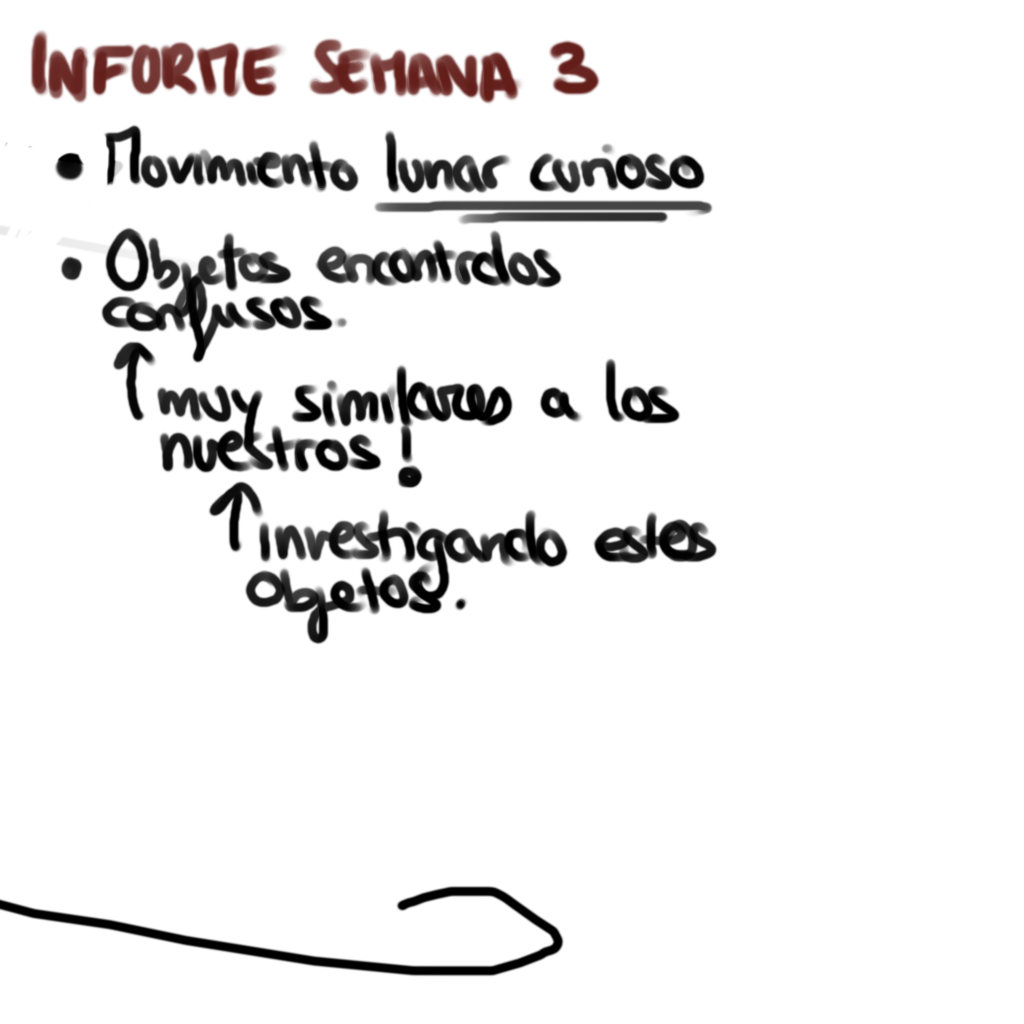 INFORME SEMANA 3
• Movimiento lunar curioso
• Objetos encontrdos
confusos.
↑ muy similares a los
nuestros!
↑ investigando estos
objetos.